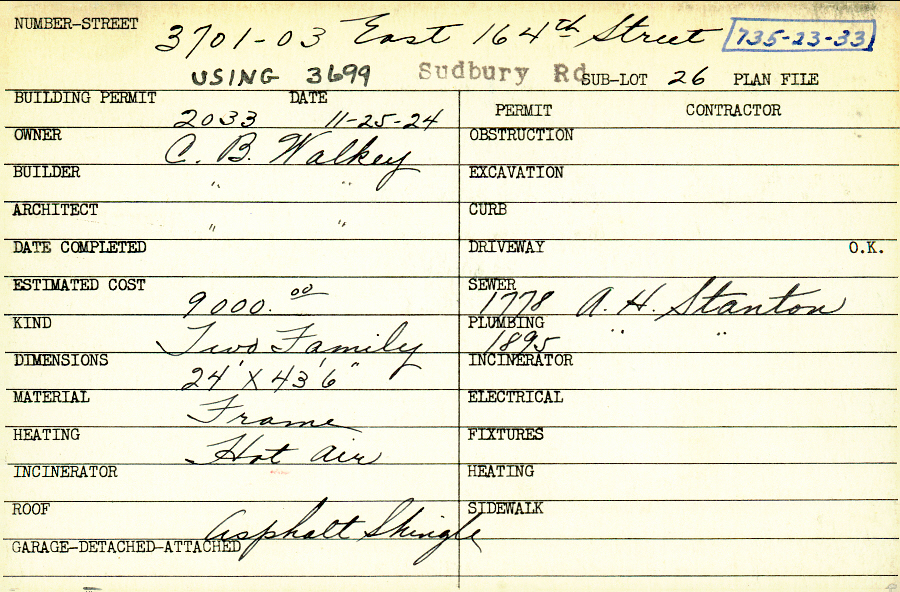 NUMBER-STREET 3701-03 East 164th Street 735-23-33
USING 3699 Sudbury Rd SUB-LOT 26 PLAN FILE
BUILDING PERMIT 2033 DATE 11-25-24
OWNER C. B. Walkey
BUILDER " "
ARCHITECT " "
DATE COMPLETED
ESTIMATED COST 9000.00
KIND Two Family
DIMENSIONS 24' X 43' 6"
MATERIAL Frame
HEATING Hot air
INCINERATOR
ROOF Asphalt Shingle
GARAGE-DETACHED-ATTACHED
PERMIT CONTRACTOR
OBSTRUCTION
EXCAVATION
CURB
DRIVEWAY O.K.
SEWER 1778 A. H. Stanton
PLUMBING 1895 " "
INCINERATOR
ELECTRICAL
FIXTURES
HEATING
SIDEWALK